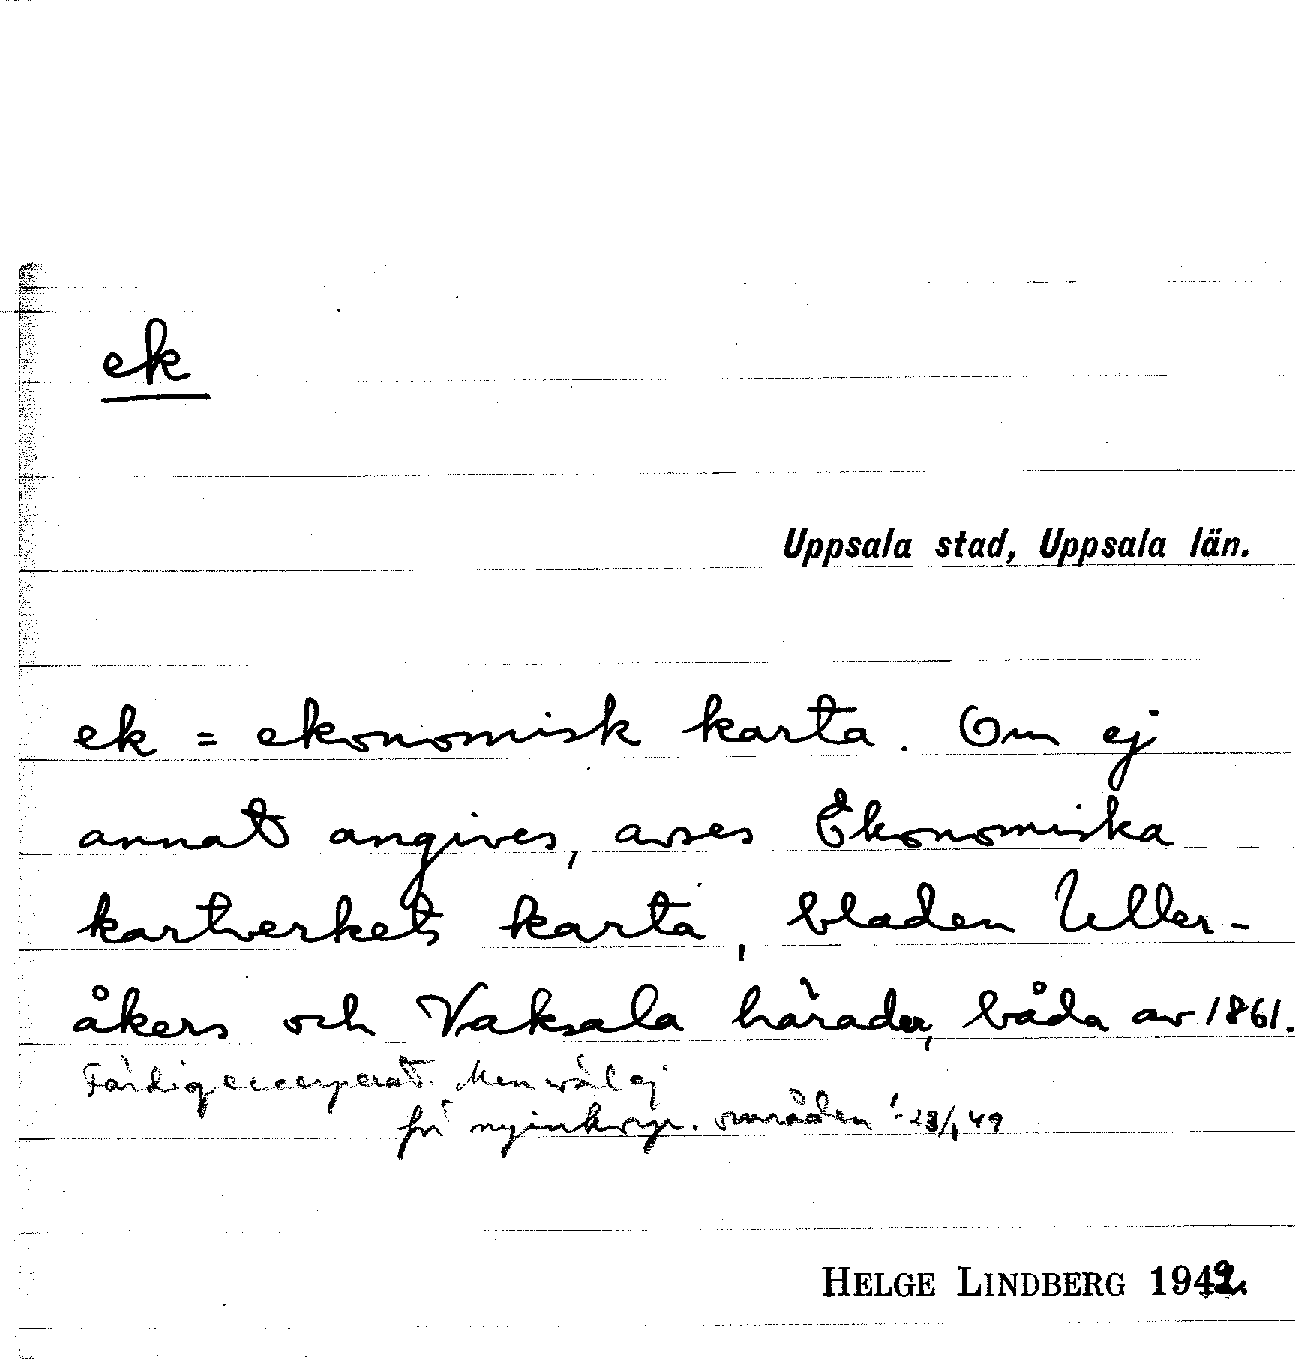 ek
Uppsala stad, Uppsala län.
ek = ekonomisk karta. Om ej
annat angives, avses Ekonomiska
kartverkets karta, bladen Uller-
åkers och Vaksala härader, båda av 1861.
Färdigexcerperat. Men väl ej
för nyinkorp. områden! 23/1 49
HELGE LINDBERG 1949.